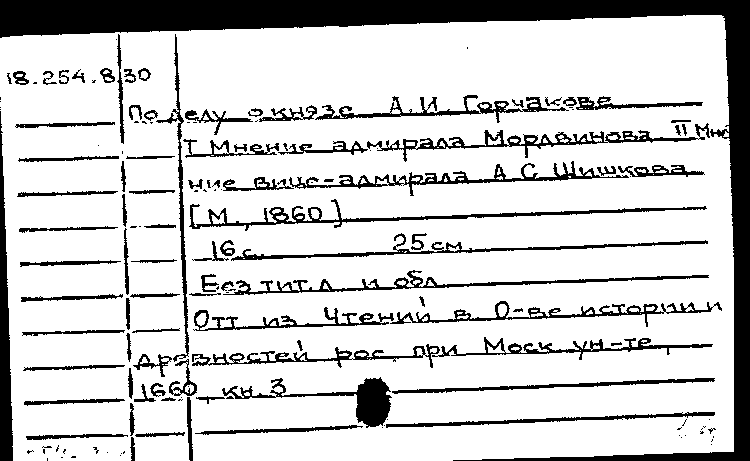 18.254.8.30
По делу о князе А.И. Горчакове
I Мнение адмирала Мордвинова. II Мне
ние вице-адмирала А С Шишкова
[М., 1860]
16 с. 25 см.
Без тит. л. и обл
Отт из. Чтений в О-ве истории и
древностей рос. при Моск ун-те,
1660, кн. 3